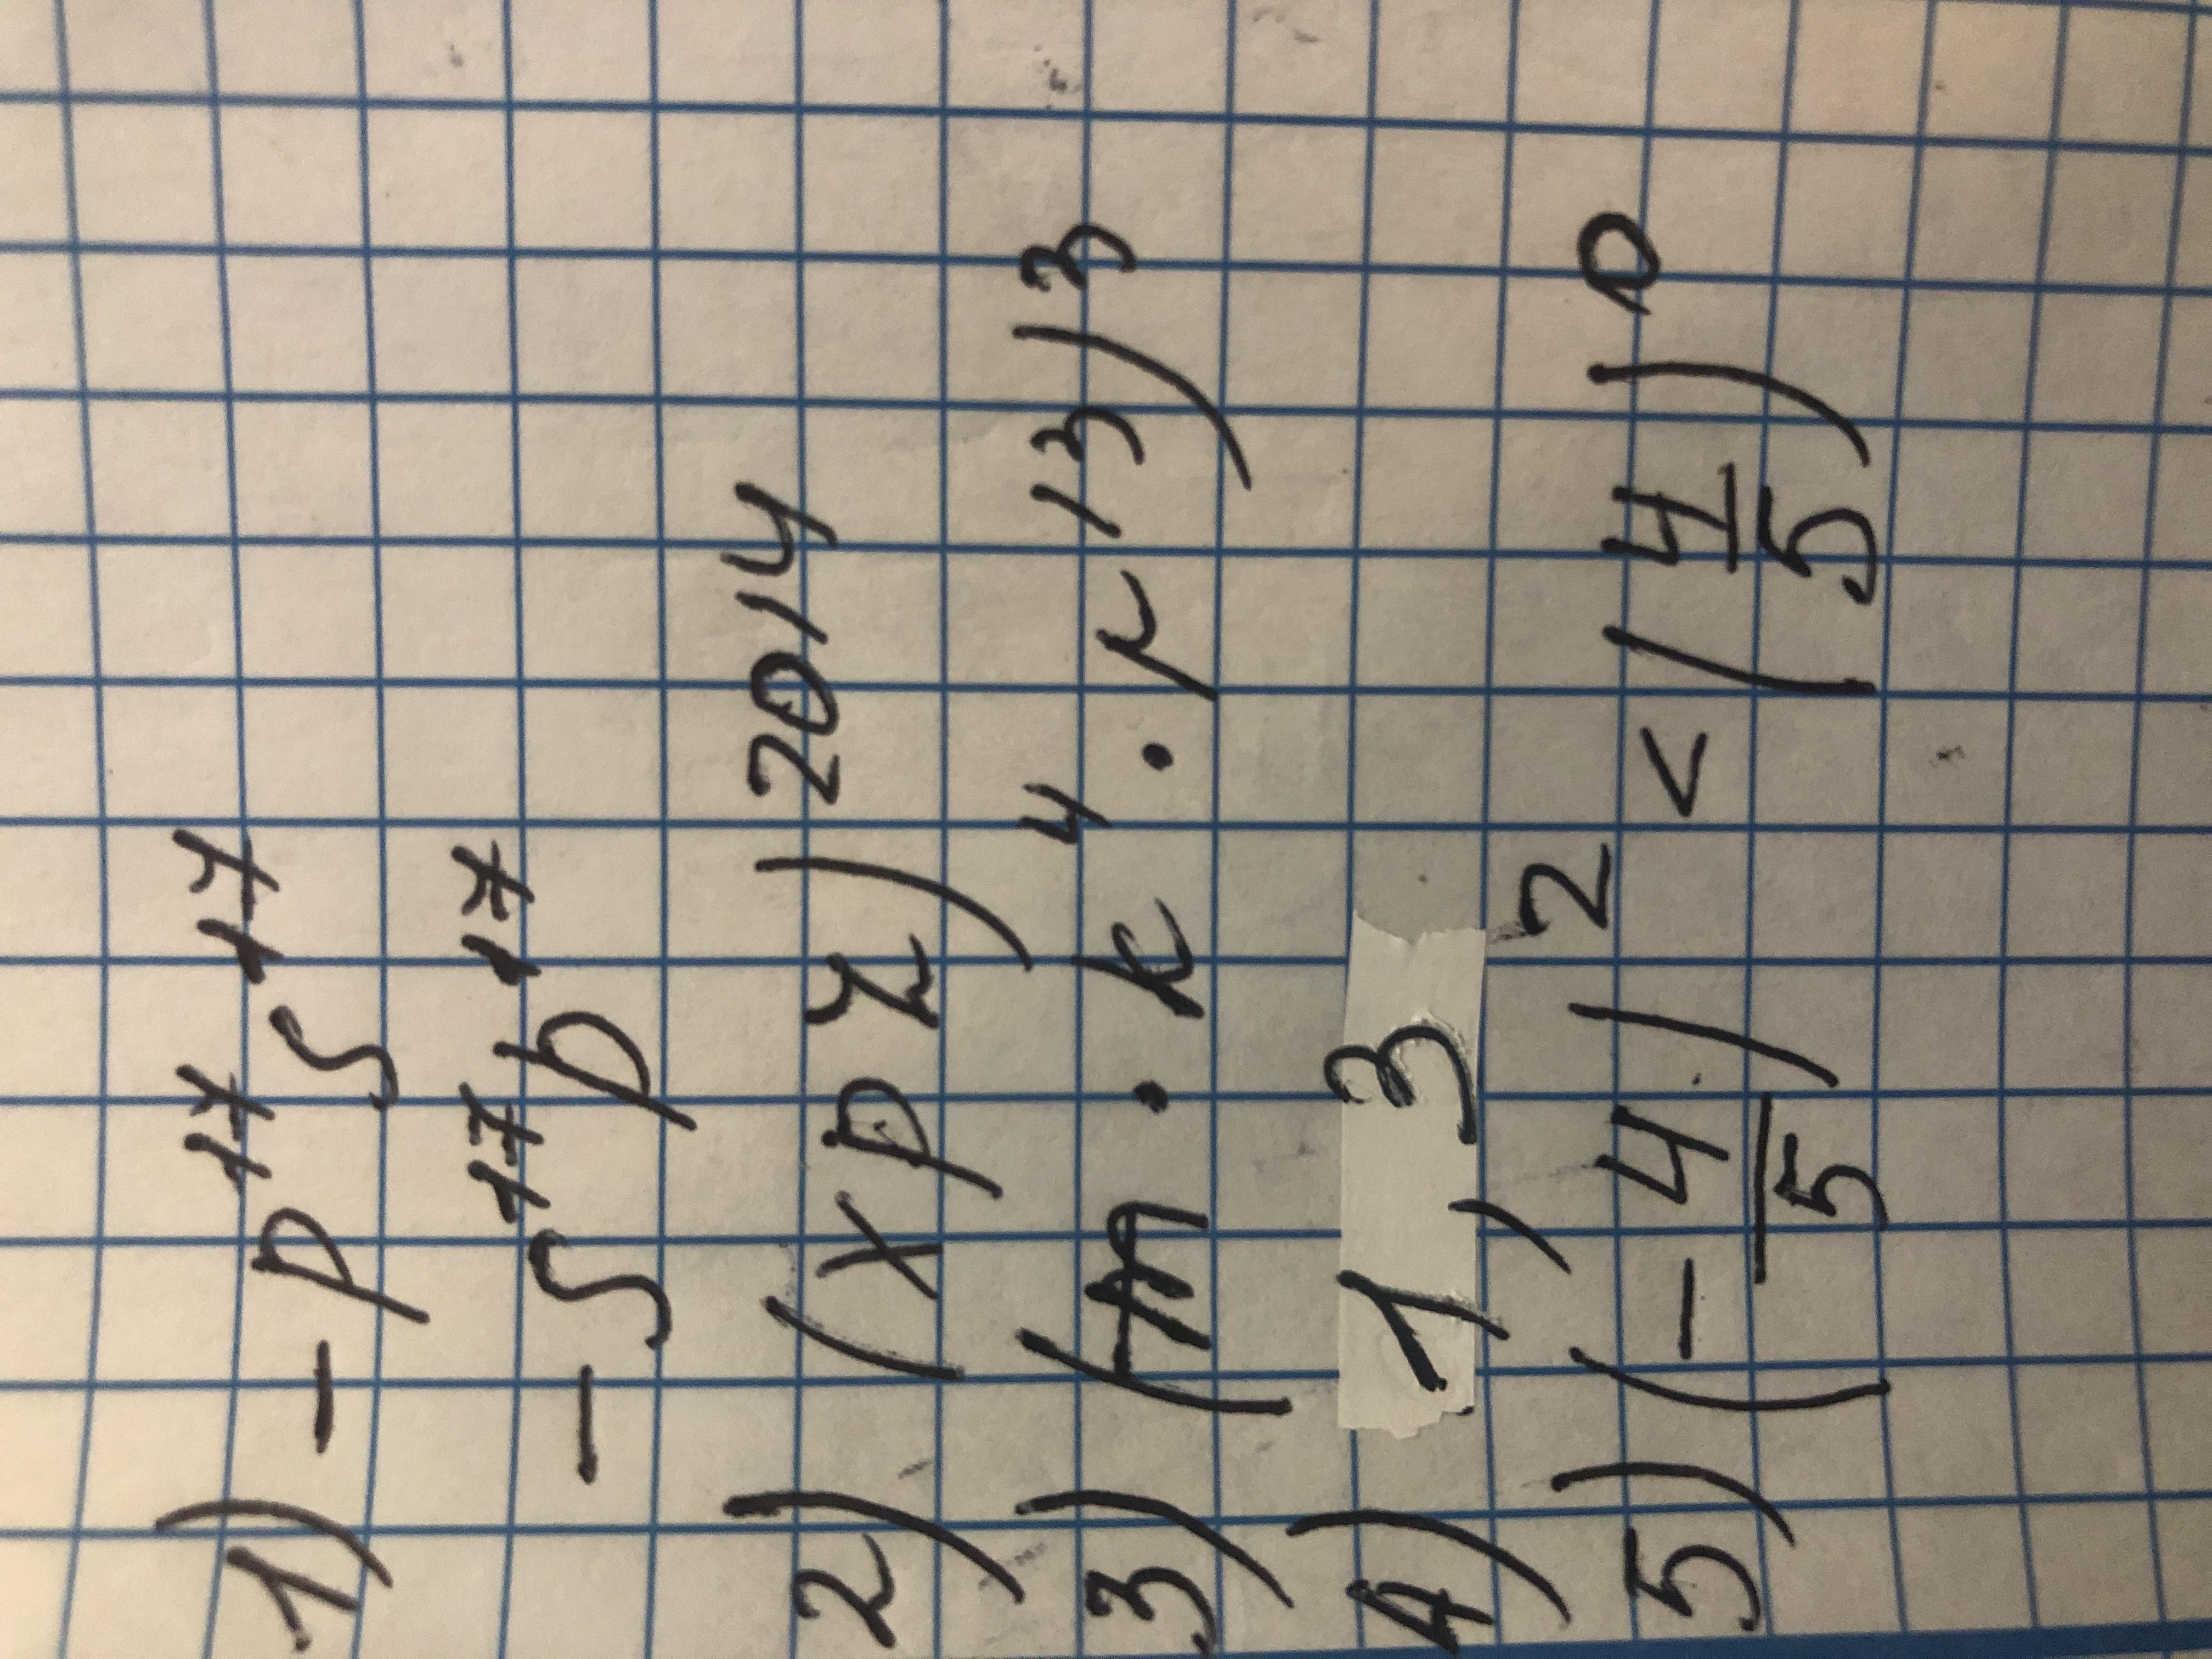 1) -p¹⁷ s¹⁷
-s¹⁷ p¹⁷
2) (xpz)²⁰¹⁴
3) (m · k⁴ · r¹³)³
4) 1,3
5) (-4/5)² < (4/5)⁰